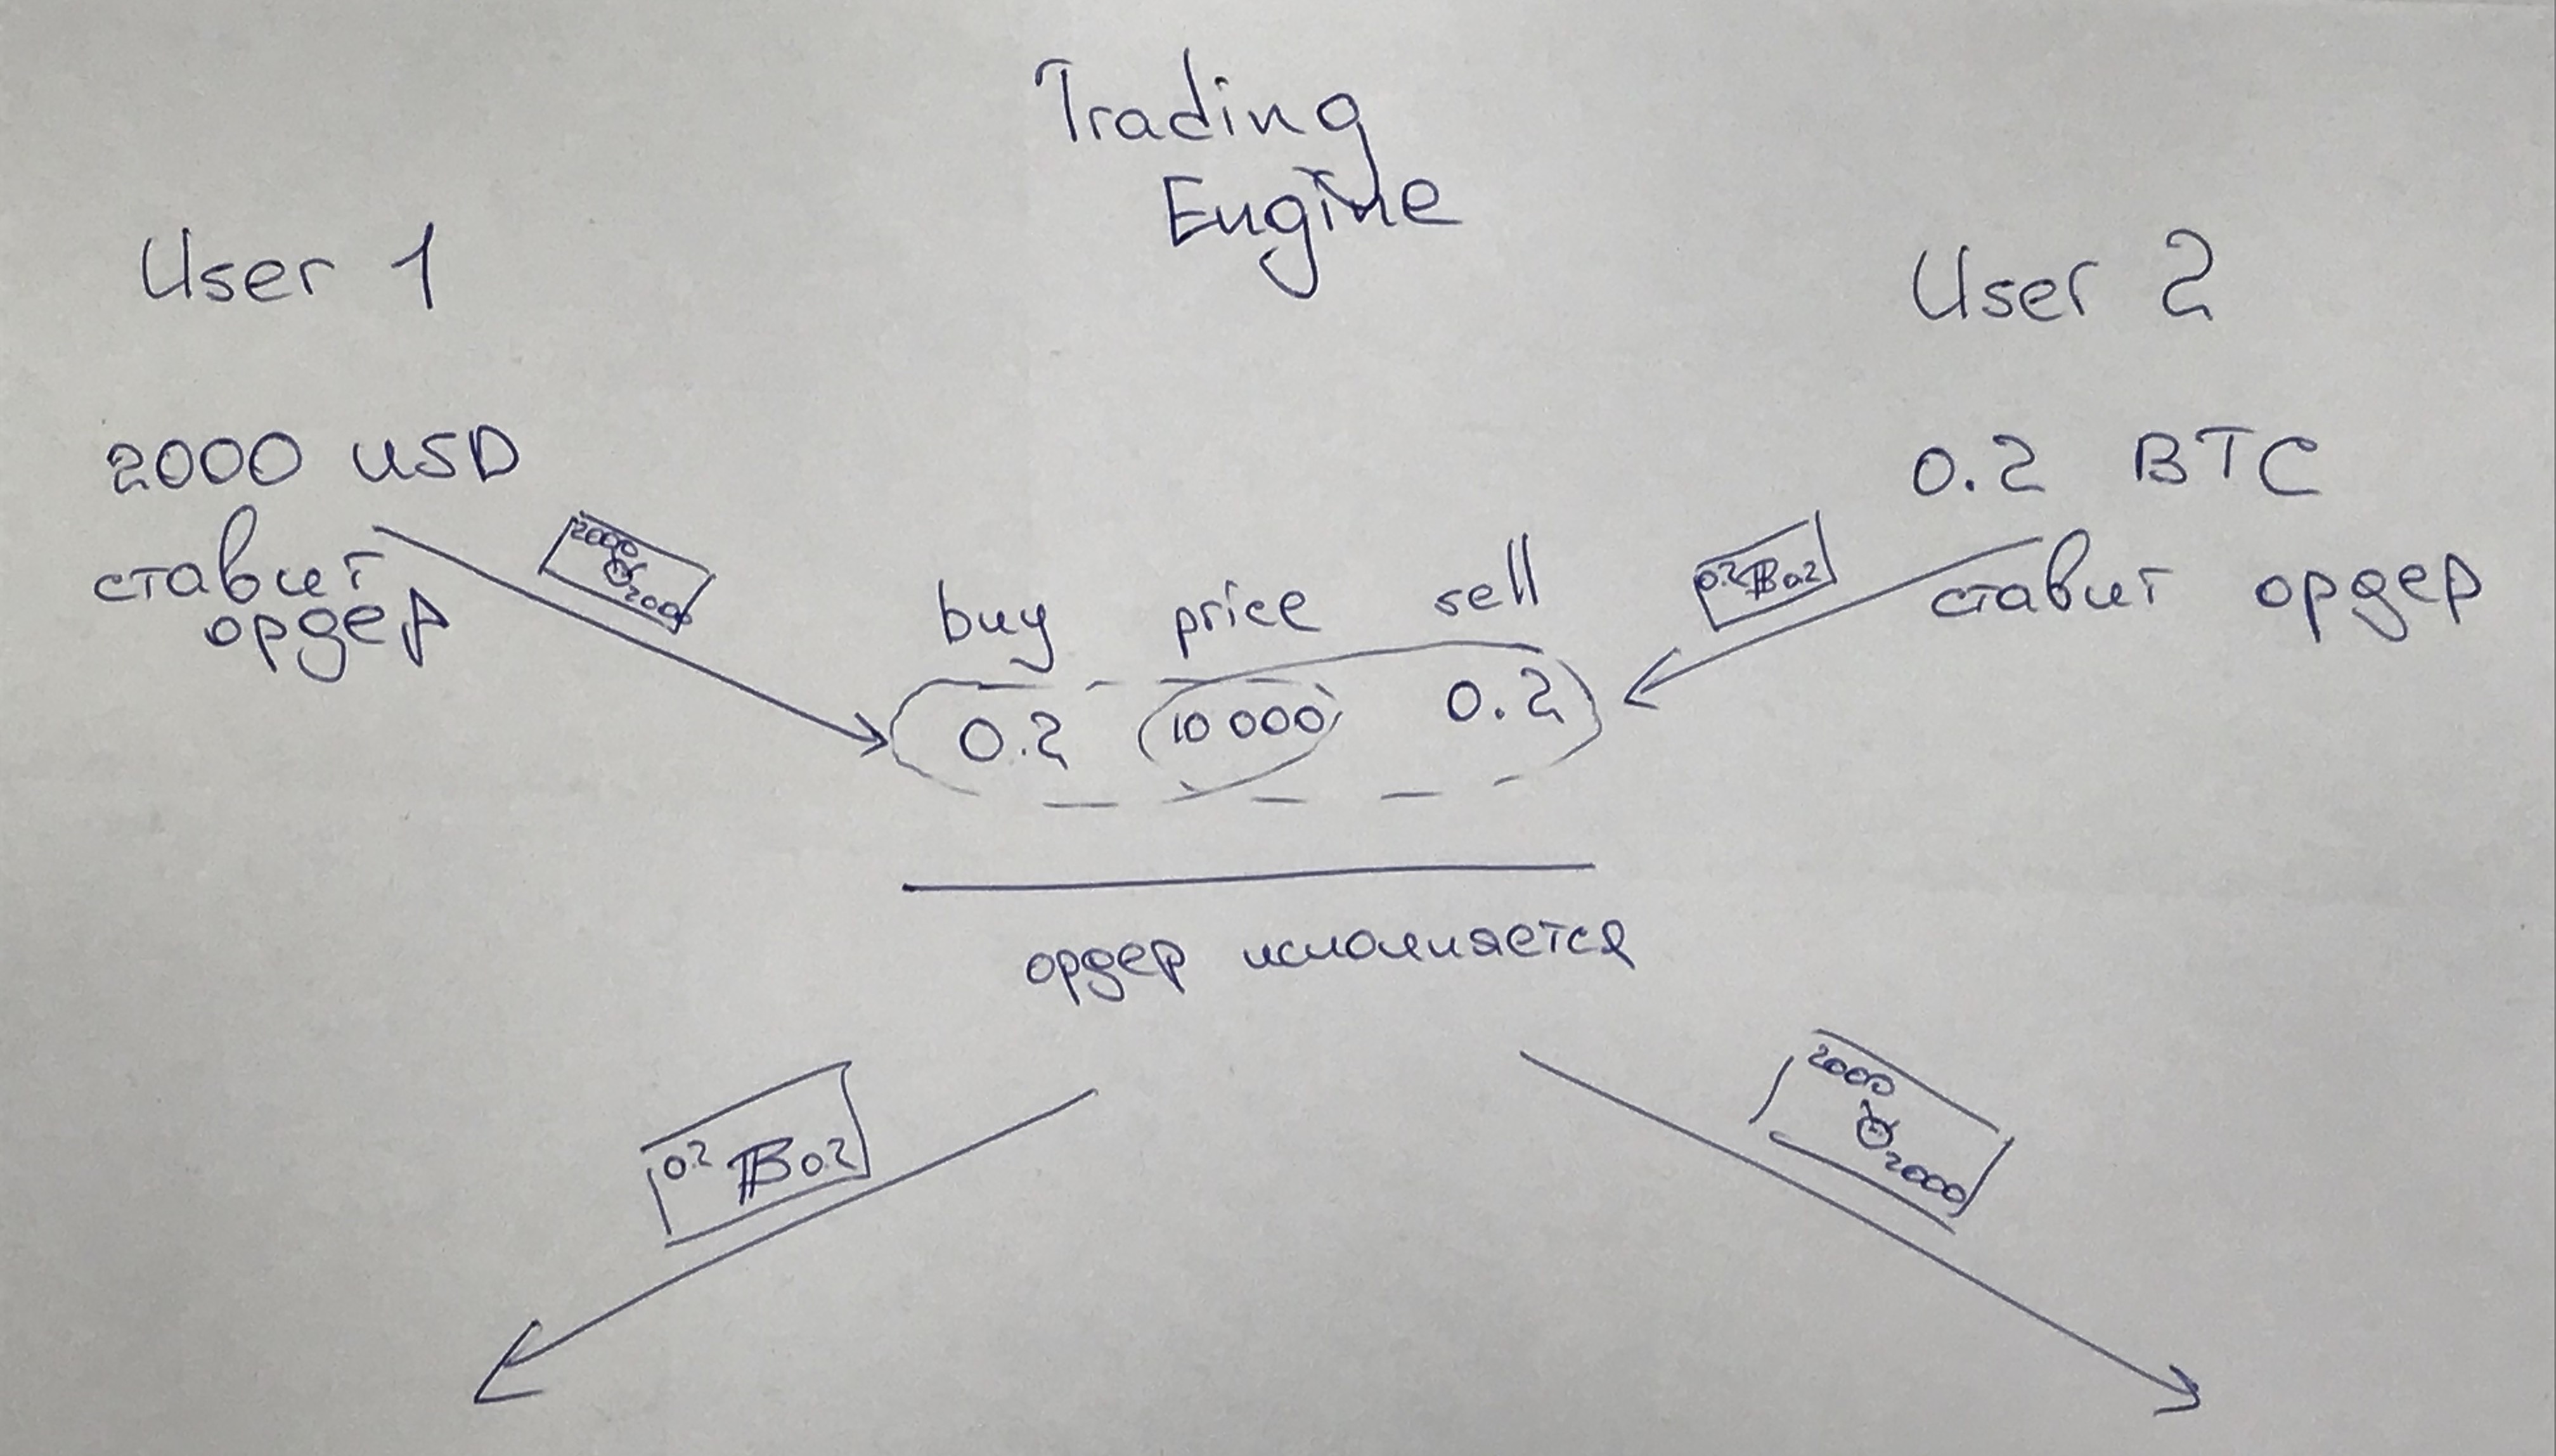 Trading
Engine
User 1
User 2
2000 USD
ставит
ордер
2000
2000
0.2 BTC
ставит ордер
0.2 ₿ 0.2
buy price sell
0.2 10 000 0.2
ордер исполняется
0.2 ₿ 0.2
2000
2000